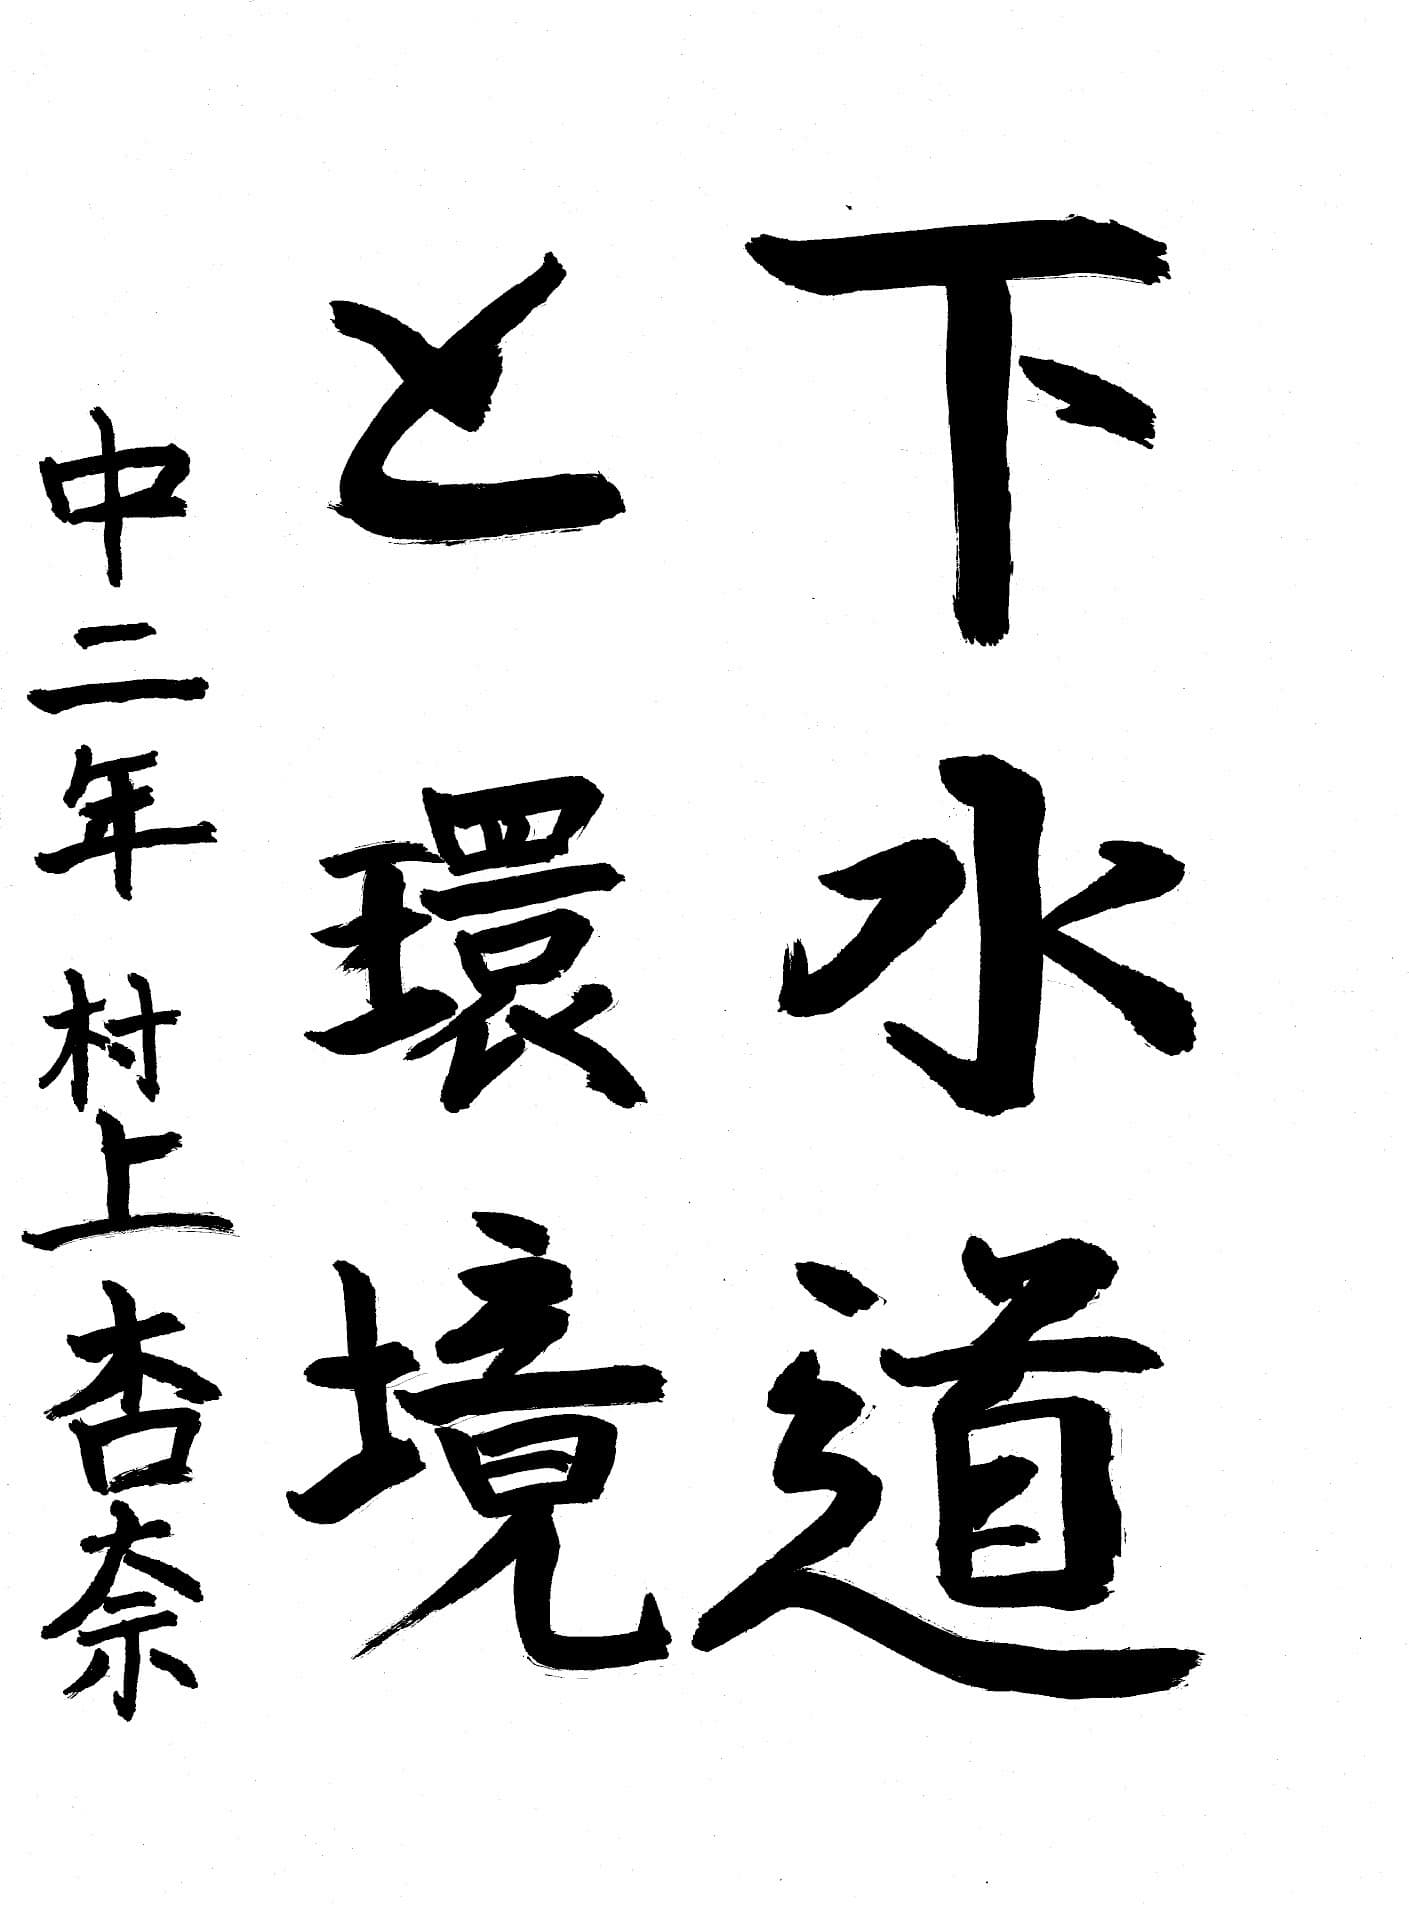 下水道
と環境
中二年 村上杏奈